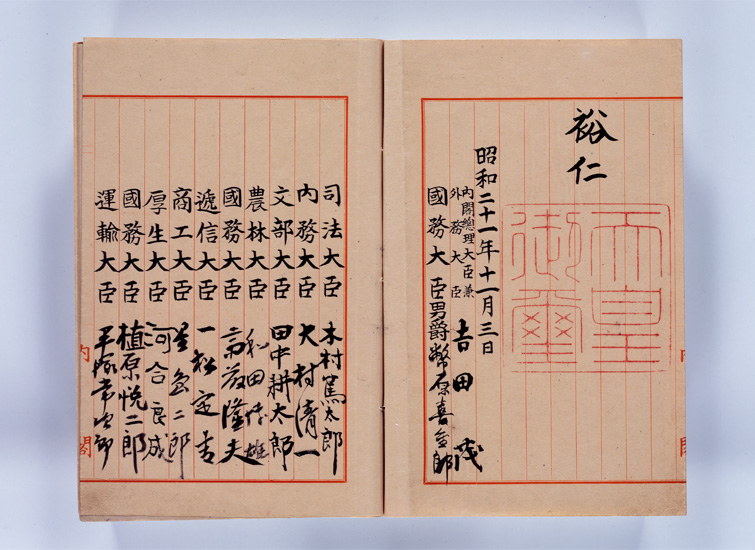 裕仁
天皇
御璽
昭和二十一年十一月三日
内閣總理大臣兼
外務大臣
吉田茂
國務大臣 男爵幣原喜重郎
司法大臣 木村篤太郎
内務大臣 大村清一
文部大臣 田中耕太郎
農林大臣 和田博雄
國務大臣 斎藤隆夫
遞信大臣 一松定吉
商工大臣 星島二郎
厚生大臣 河合良成
國務大臣 植原悦二郎
運輸大臣 平塚常次郎
内閣